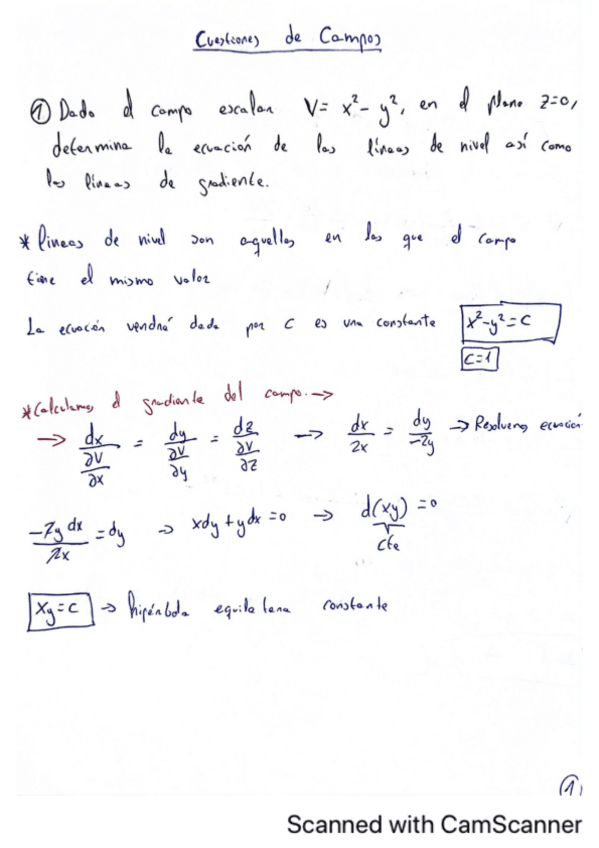 Cuestiones de Campos
① Dado el campo escalar V = x² - y², en el plano z=0,
determina la ecuación de las líneas de nivel así como
las líneas de gradiente.
* líneas de nivel son aquellas en las que el campo
tiene el mismo valor
La ecuación vendrá dada por C es una constante x²-y²=C
C=1
* Calculamos el gradiente del campo. →
→ dx/(∂V/∂x) = dy/(∂V/∂y) = dz/(∂V/∂z) → dx/2x = dy/-2y → Resolvemos ecuación
-2y dx/2x = dy → xdy + ydx = 0 → d(xy) = 0
cte
xy=c → hipérbola equilatera constante
①
Scanned with CamScanner